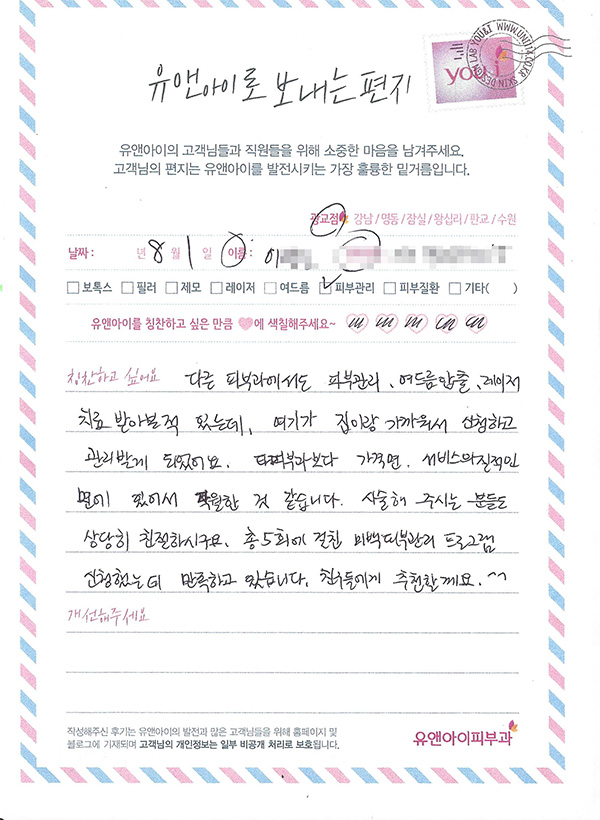 SKIN DESIGN LAB YOU&I WWW.UNI114.CO.KR
you i
유앤아이로 보내는 편지
유앤아이의 고객님들과 직원들을 위해 소중한 마음을 남겨주세요.
고객님의 편지는 유앤아이를 발전시키는 가장 훌륭한 밑거름입니다.
광교점 강남/명동/잠실/왕십리/판교/수원
날짜 : 년 8월 1일 이름 : 이
보톡스 필러 제모 레이저 여드름 피부관리 피부질환 기타( )
유앤아이를 칭찬하고 싶은 만큼 에 색칠해주세요~
칭찬하고 싶어요 다른 피부과에서도 피부관리, 여드름압출, 레이저
치료 받아본적 있는데, 여기가 집이랑 가까워서 신청하고
관리받게 되었어요. 타피부과보다 가격면, 서비스의질적인
면에 있어서 탁월한 것 같습니다. 시술해 주시는 분들도
상당히 친절하시구요. 총5회에 걸친 미백피부관리 프로그램
신청했는데 만족하고 있습니다. 친구들에게 추천할께요.^^
개선해주세요
작성해주신 후기는 유앤아이의 발전과 많은 고객님들을 위해 홈페이지 및
블로그에 기재되며 고객님의 개인정보는 일부 비공개 처리로 보호됩니다.
유앤아이피부과